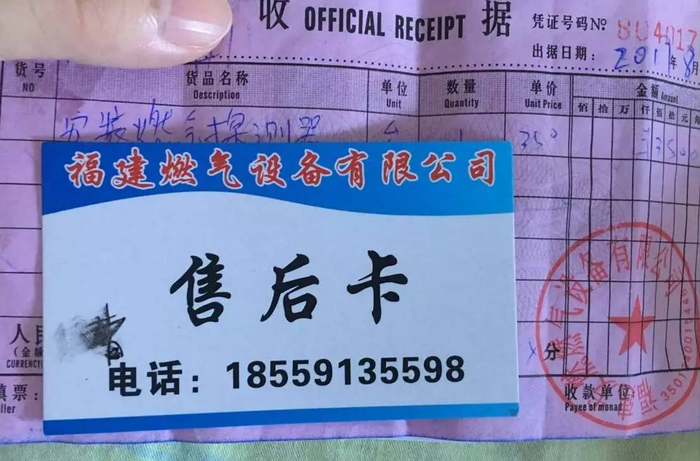 收 OFFICIAL RECEIPT 据
凭证号码No
出据日期: 2017年8月
货号
NO
货品名称
Description
单位
Unit
数量
Quantity
单价
Unit Price
金额 Amount
佰 拾 万 仟 佰 拾 元
安装燃气探测器 台 1 350
福建燃气设备有限公司
售后卡
电话：18559135598
人民
(金额
CURRENCY
分
填票:
收款单位
Payee of
燃气设备有限公司